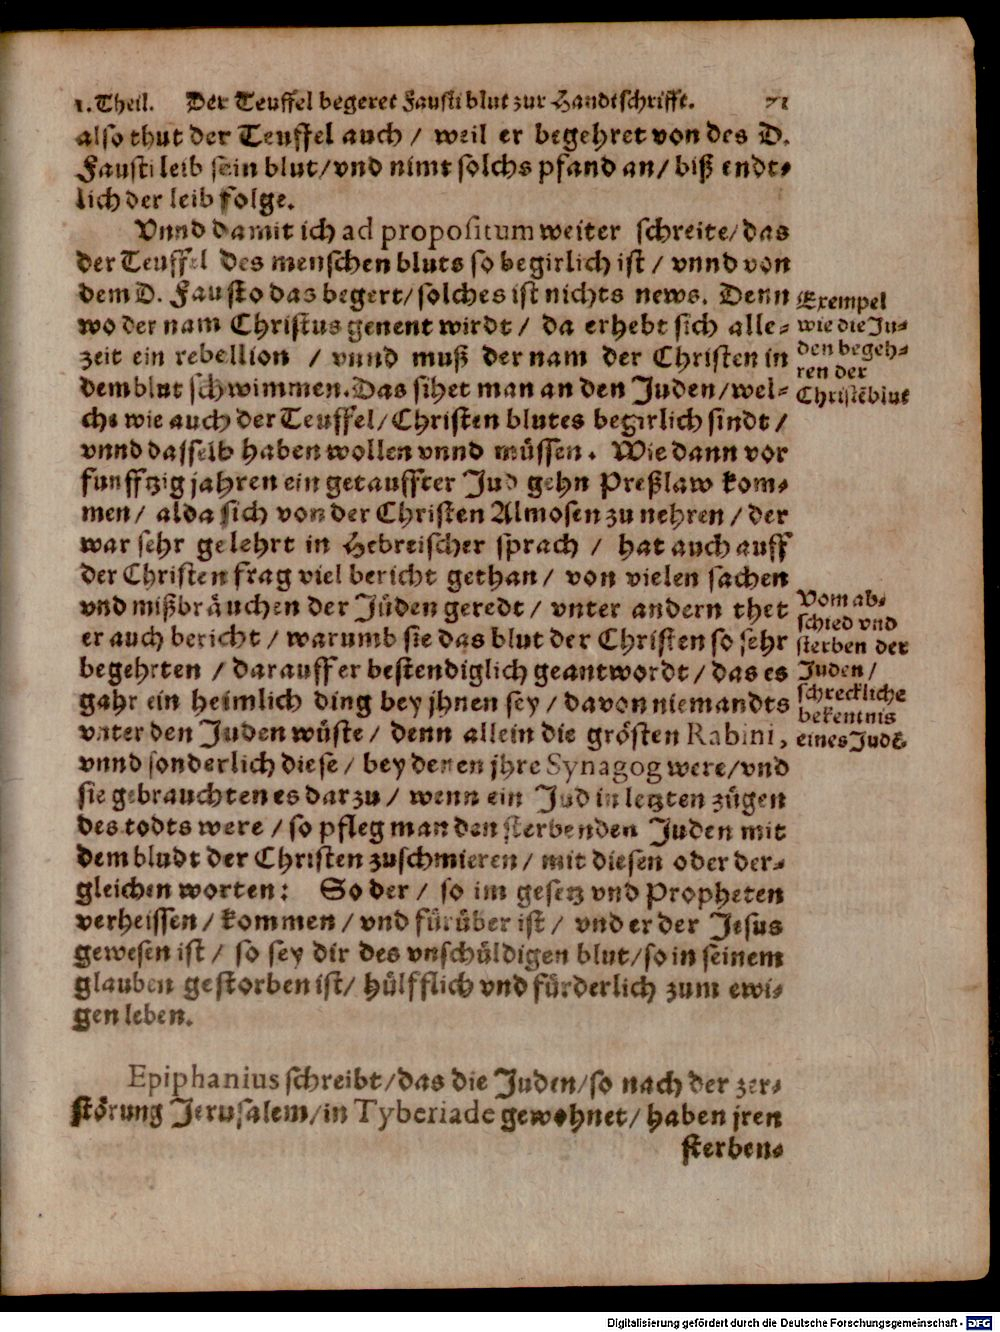 1. Theil. Der Teuffel begeret Fausti blut zur Handtschrifft. 71
also thut der Teuffel auch / weil er begehret von des D.
Fausti leib sein blut/vnd nimt solchs pfand an/ biß endt⸗
lich der leib folge.
Vnnd damit ich ad propositum weiter schreite/das
der Teuffel des menschen bluts so begirlich ist / vnnd von
dem D. Fausto das begert/ solches ist nichts news. Denn
wo der nam Christus genent wirdt / da erhebt sich alle⸗
zeit ein rebellion / vnnd muß der nam der Christen in
dem blut schwimmen. Das sihet man an den Juden/wel⸗
che wie auch der Teuffel/Christen blutes begirlich sindt /
vnnd dasselb haben wollen vnnd müssen. Wie dann vor
funfftzig jahren ein getauffter Jud gehn Preßlaw kom⸗
men/ alda sich von der Christen Almosen zu nehren / der
war sehr gelehrt in Hebreischer sprach / hat auch auff
der Christen frag viel bericht gethan/ von vielen sachen
vnd mißbräuchen der Jüden geredt / vnter andern thet
er auch bericht / warumb sie das blut der Christen so sehr
begehrten / darauff er bestendiglich geantwordt / das es
gahr ein heimlich ding bey jhnen sey / davon niemandts
vnter den Juden wüste/ denn allein die grösten Rabini,
vnnd sonderlich diese / bey denen jhre Synagog were/vnd
sie gebrauchten es darzu / wenn ein Jud in letzten zügen
des todts were / so pfleg man den sterbenden Juden mit
dem bludt der Christen zuschmieren / mit diesen oder der⸗
gleichen worten: So der / so im gesetz vnd Propheten
verheissen / kommen / vnd fürüber ist / vnd er der Jesus
gewesen ist / so sey dir des vnschüldigen blut/so in seinem
glauben gestorben ist/ hülfflich vnd fürderlich zum ewi⸗
gen leben.
Epiphanius schreibt/das die Juden/so nach der zer⸗
störung Jerusalem/in Tyberiade gewohnet/ haben jren
sterben⸗
Exempel
wie die Ju⸗
den begeh⸗
ren der
Christēblut
Vom ab⸗
schied vnd
sterben der
Juden /
schreckliche
bekentnis
eines Judē.
Digitalisierung gefördert durch die Deutsche Forschungsgemeinschaft - DFG